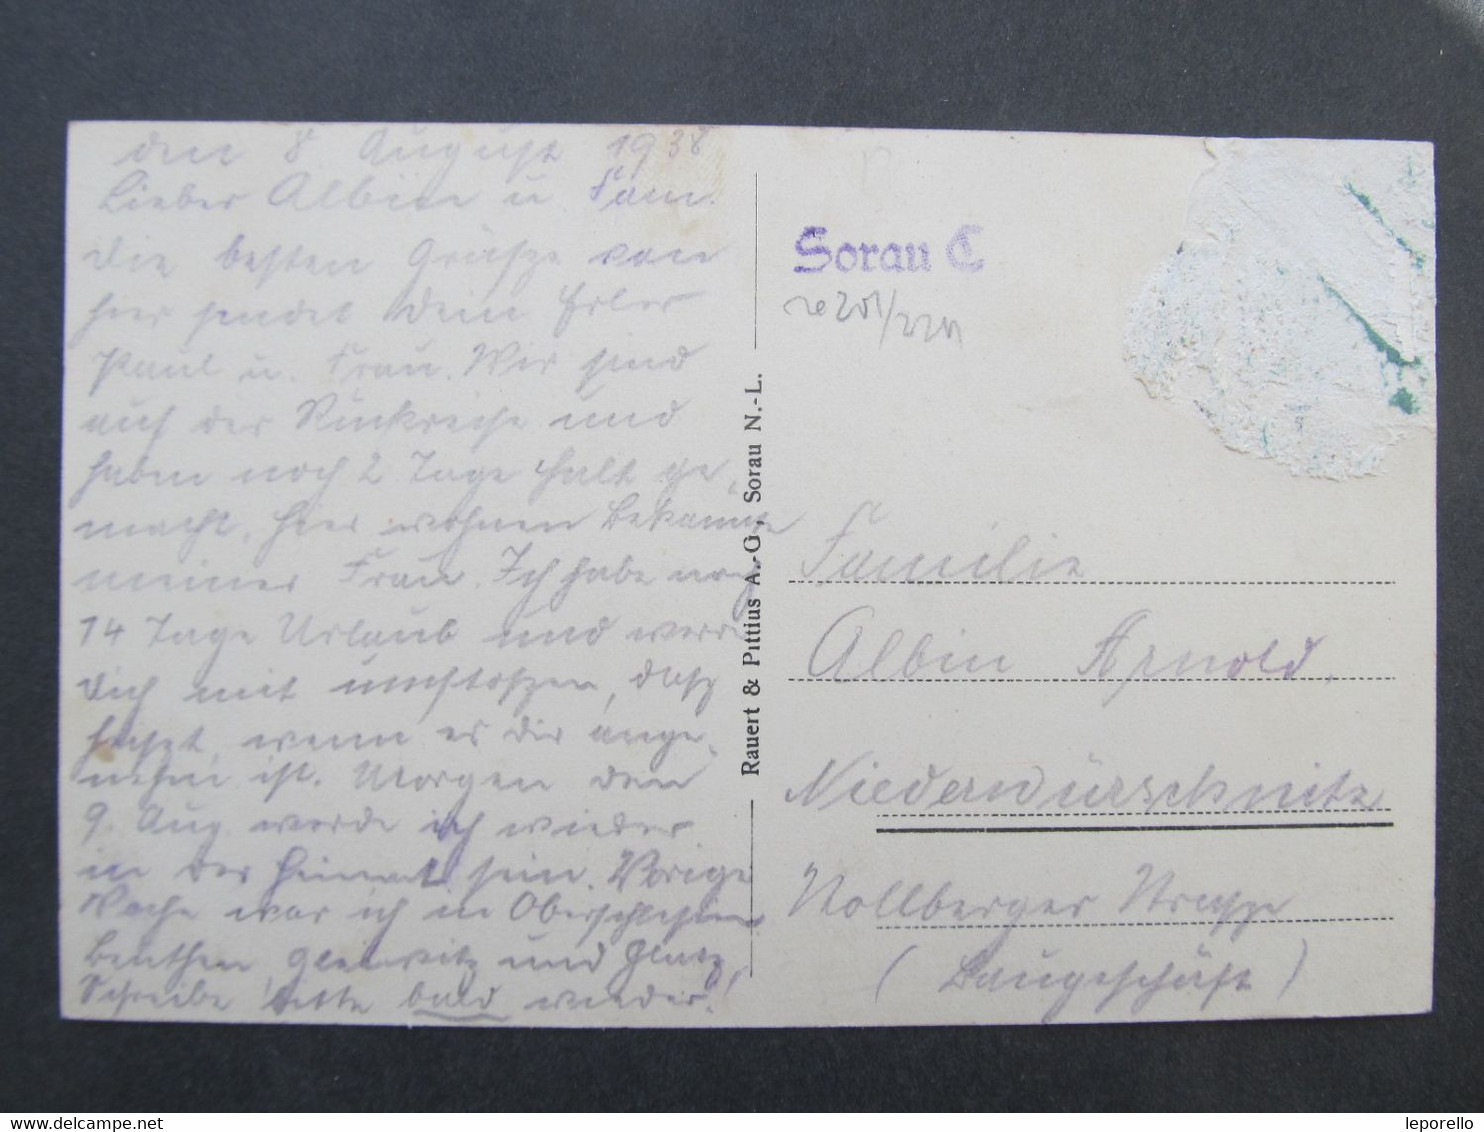 den 8. August 1938
Lieber Albin u. Fam.
die besten Grüsze von
hier sendet dein
Paul u. Frau. Wir sind
auf der Rückreise und
haben noch 2 Tage halt ge,
macht. Hier wohnen Bekannte
meiner Frau. Ich habe noch
14 Tage Urlaub und werde
dich mit umstoszen, dasz
heiszt, wenn es dir ange,
nehm ist. Morgen den
9. Aug. werde ich wieder
in der Heimat sein. Vorige
Woche war ich in Oberschlesien
Beuthen, Gleiwitz und Glatz,
Schreibe bitte bald wieder!
Rauert & Pittius A.-G., Sorau N.-L.
Sorau C
Familie
Albin Arnold,
Niederwürschnitz
Strasze
(Baugeschäft)
leporello